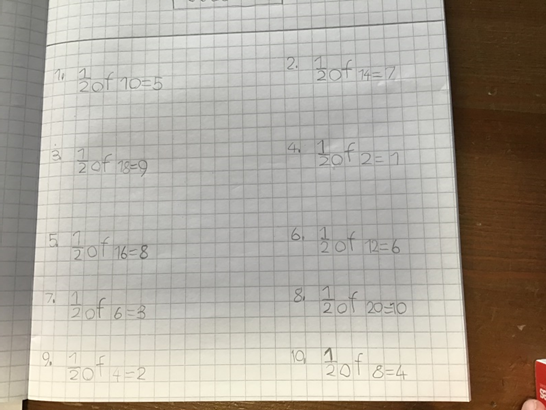 1. 1/2 of 10=5
2. 1/2 of 14=7
3. 1/2 of 18=9
4. 1/2 of 2=1
5. 1/2 of 16=8
6. 1/2 of 12=6
7. 1/2 of 6=3
8. 1/2 of 20=10
9. 1/2 of 4=2
10. 1/2 of 8=4